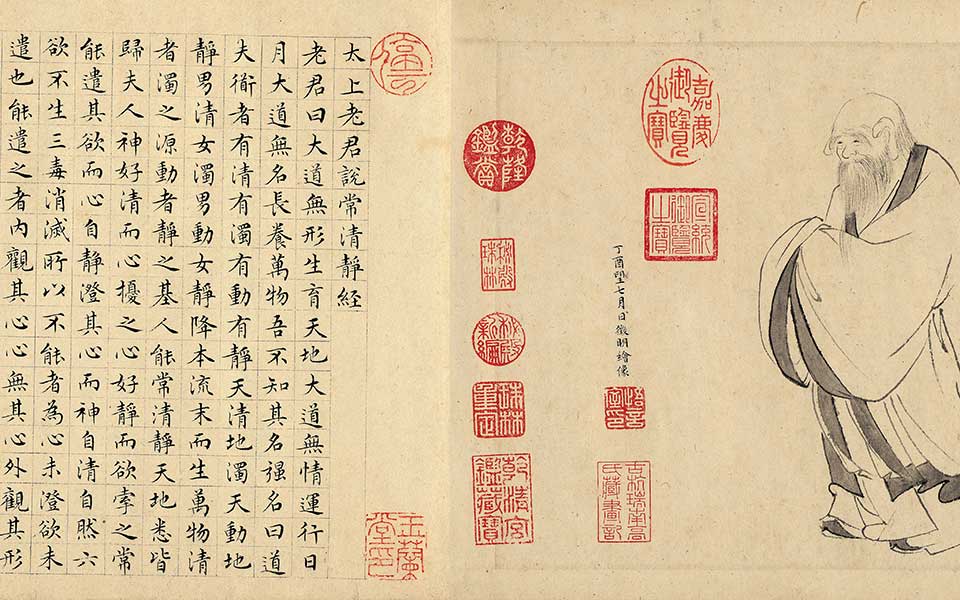 嘉慶御覽之寶
宣統御覽之寶
丁酉朢七月日徵明繪像
悟言室印
古杭瑞南高氏藏畫記
乾隆鑑賞
秘殿珠林
秘殿新編
珠林重定
乾清宮鑑藏寶
停雲
玉蘭堂印
太上老君說常清靜経
老君曰大道無形生育天地大道無情運行日
月大道無名長養萬物吾不知其名强名曰道
夫衜者有清有濁有動有靜天清地濁天動地
靜男清女濁男動女靜降本流末而生萬物清
者濁之源動者靜之基人能常清靜天地悉皆
歸夫人神好清而心擾之心好靜而欲牽之常
能遣其欲而心自靜澄其心而神自清自然六
欲不生三毒消滅所以不能者為心未澄欲未
遣也能遣之者內觀其心心無其心外觀其形